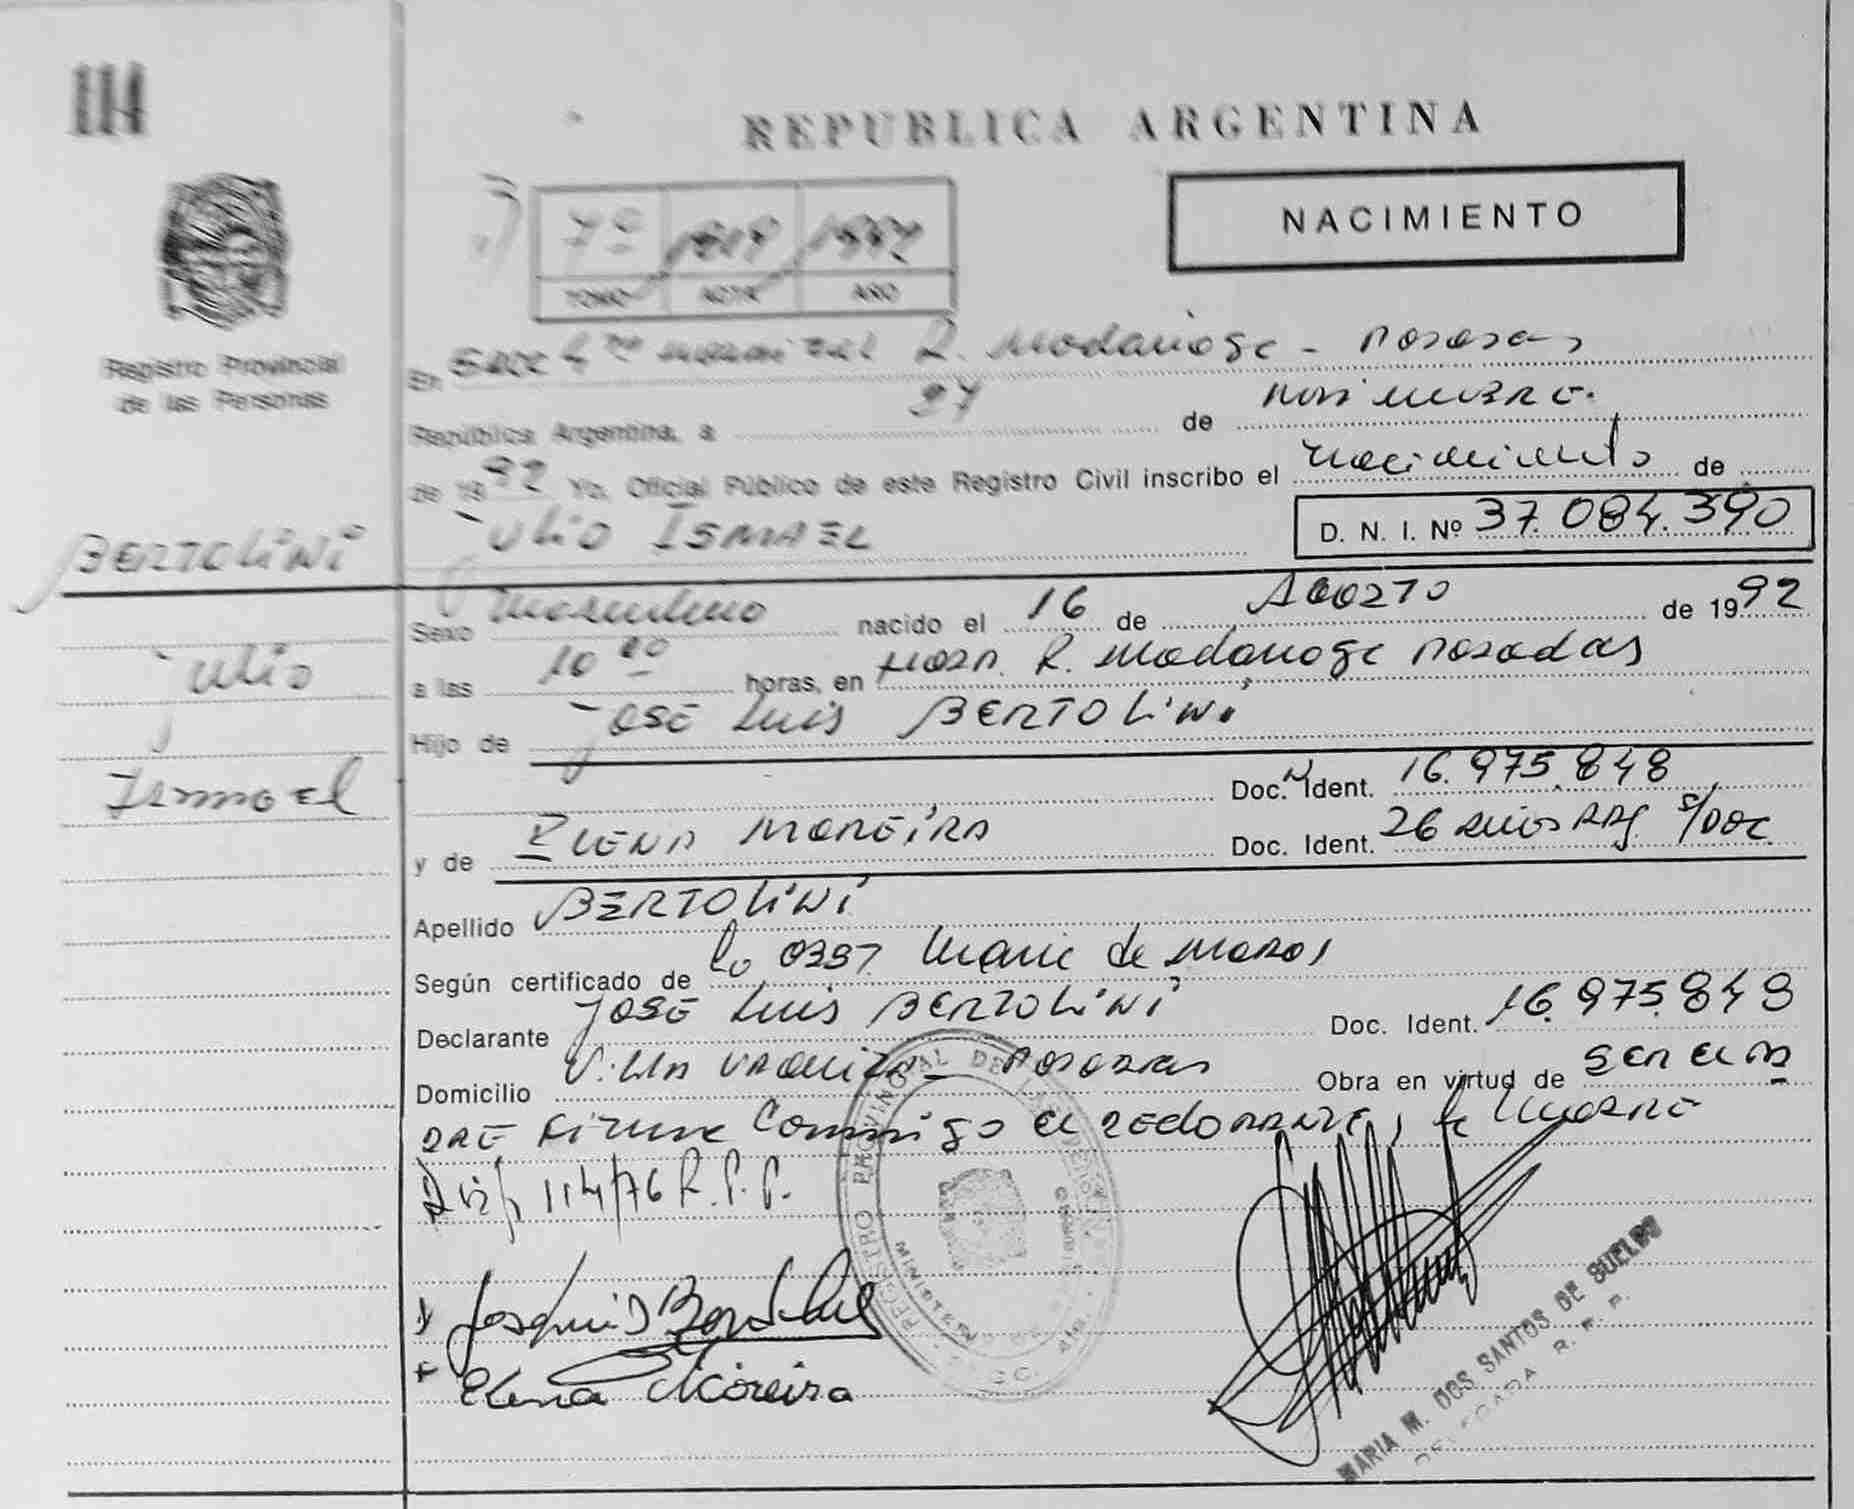 114
REPUBLICA ARGENTINA
NACIMIENTO
7º 1992
TOMO ACTA AÑO
Registro Provincial
de las Personas
En Secc 4ta R. Madariaga - Posadas
República Argentina, a 27 de noviembre.
de 1992 Yo, Oficial Público de este Registro Civil inscribo el nacimiento de
BERTOLINI
Julio ISMAEL
D. N. I. Nº 37.084.390
Sexo Masculino nacido el 16 de AGOSTO de 1992
Julio
a las 10 horas, en Hosp. R. Madariaga Posadas
Hijo de José Luis BERTOLINI
Ismael
Doc. Ident. 16.975.848
y de ELENA MOREIRA Doc. Ident. 26 años ARG. s/DOC
Apellido BERTOLINI
Según certificado de
Declarante José Luis BERTOLINI Doc. Ident. 16.975.848
Domicilio Villa URQUIZA - POSADAS Obra en virtud de ser el pa
dre firma conmigo el declarante y la madre
114/76 R.P.P.
REGISTRO PROVINCIAL DE LAS PERSONAS
Elena Moreira
MARIA M. DOS SANTOS DE SUELDO
DELEGADA R. P. P.